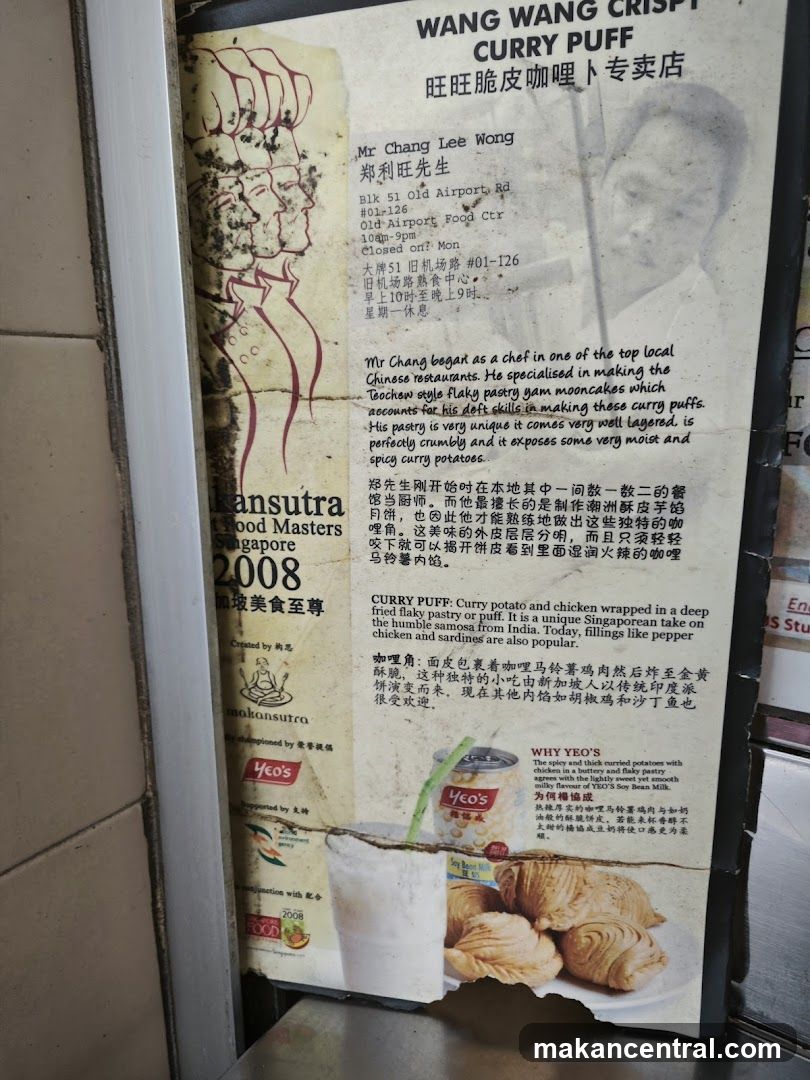 WANG WANG CRISPY
CURRY PUFF
旺旺脆皮咖哩卜专卖店
Mr Chang Lee Wong
郑利旺先生
Blk 51 Old Airport Rd
#01-126
Old Airport Food Ctr
10am-9pm
Closed on: Mon
大牌51 旧机场路 #01-126
旧机场路熟食中心
早上10时至晚上9时
星期一休息
Mr Chang began as a chef in one of the top local
Chinese restaurants. He specialised in making the
Teochew style flaky pastry yam mooncakes which
accounts for his deft skills in making these curry puffs.
His pastry is very unique it comes very well layered, is
perfectly crumbly and it exposes some very moist and
spicy curry potatoes.
郑先生刚开始时在本地其中一间数一数二的餐
馆当厨师。而他最擅长的是制作潮洲酥皮芋馅
月饼，也因此他才能熟练地做出这些独特的咖
哩角。这美味的外皮层层分明，而且只须轻轻
咬下就可以揭开饼皮看到里面湿润火辣的咖哩
马铃薯内馅。
CURRY PUFF: Curry potato and chicken wrapped in a deep
fried flaky pastry or puff. It is a unique Singaporean take on
the humble samosa from India. Today, fillings like pepper
chicken and sardines are also popular.
咖哩角: 面皮包裹着咖哩马铃薯鸡肉然后炸至金黄
酥脆，这种独特的小吃由新加坡人以传统印度派
饼演变而来，现在其他内馅如胡椒鸡和沙丁鱼也
很受欢迎。
WHY YEO'S
The spicy and thick curried potatoes with
chicken in a buttery and flaky pastry
agrees with the lightly sweet yet smooth
milky flavour of YEO'S Soy Bean Milk.
为何楊協成
热辣厚实的咖哩马铃薯鸡肉与如奶
油般的酥脆饼皮，若能来杯香醇不
太甜的楊協成豆奶将使口感更为柔
顺。
YEO'S
楊協成
Soy Bean Milk
kansutra
Food Masters
Singapore
2008
加坡美食至尊
Created by 构思
makansutra
championed by 荣誉提倡
YEO'S
Supported by 支持
environment
agency
conjunction with 配合
FOOD
2008
makancentral.com